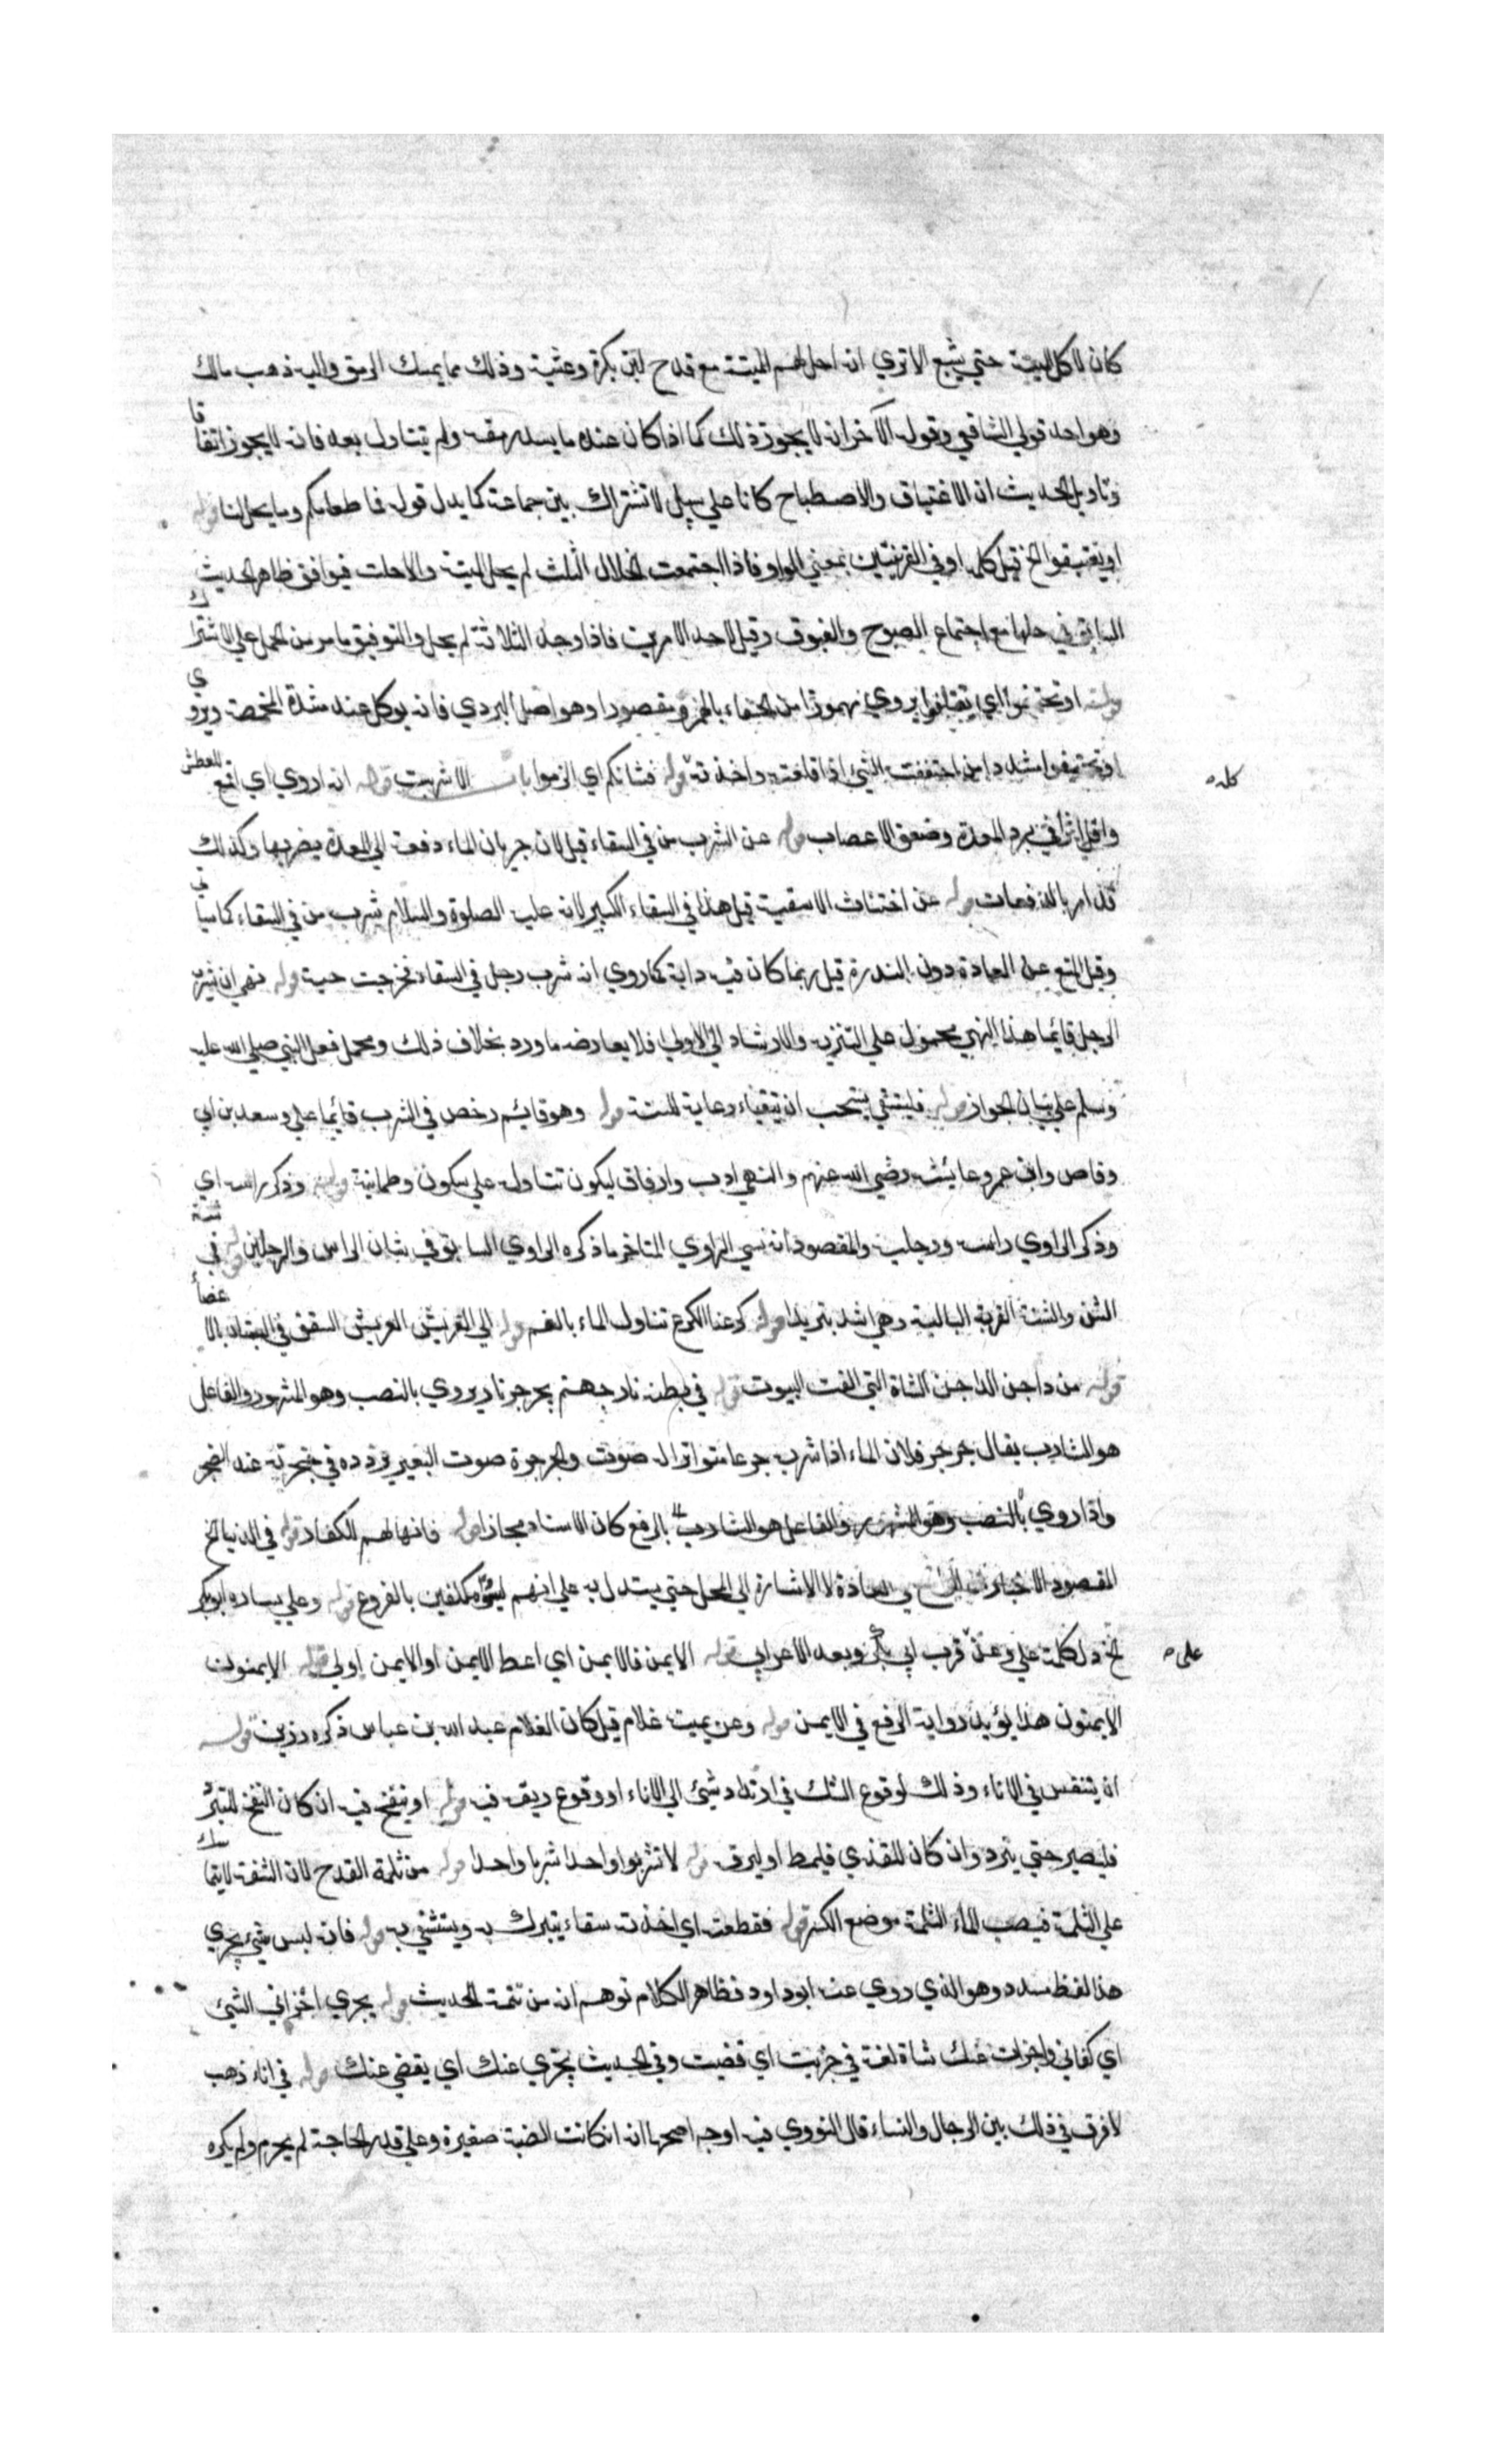 كان لاكل الميتة حتي يشبع الا تري انه احل لهم الميتة مع قدح لبن بكرة وعشية وذلك مما يمسك الرمق واليه ذهب مالك
وهو احد قولي الشافعي وقوله الآخر انه لا يجوز ذلك كما اذا كان عنده ما يسد رمقه ولم يتناول بعده فانه لا يجوز اتفاقا
وتاويل الحديث ان الاغتباق والاصطباح كانا علي سبيل الاشتراك بين جماعة كما يدل قوله فما طعامكم وما يحل لنا قوله
او تغتبقوا الخ قيل كلمة او في القرينتين بمعني الواو فاذا اجتمعت الخلال الثلث لم يحل الميتة والا حلت فيوافق ظاهر الحديث
السابق في حلها مع اجتماع الصبوح والغبوق وقيل لاحد الامرين فاذا وجد الثلاثة لم يحل والتوفيق ما مر من الحمل علي الاشتراك
قوله او تحتفوا اي تقتلعوا يروي مهموزا من الحفاء بالهمزة مقصورا وهو اصل البردي فانه يوكل عند شدة المخمصة ويروي
او تحتفوا مشددا من احتففت الشئ اذا قلعته واخذته كله قوله فشانكم اي الزموا باب الاشربة قوله انه اروي اي اقمع للعطش
واقل اثرا في برد المعدة وضعف الاعصاب قوله عن الشرب من في السقاء قيل لان جريان الماء دفعة الي المعدة يضر بها وكذلك
قد امر بالدفعات قوله عن اختناث الاسقية قيل هذا في السقاء الكبير لانه عليه الصلوة والسلام شرب من في السقاء كما سياتي
وقيل المنع عن العادة دون الندرة قيل ربما كان فيه دابة كما روي انه شرب رجل في السقاء فخرجت حية قوله نهي ان يشرب
الرجل قائما هذا النهي محمول علي التنزيه والارشاد الي الاولي فلا يعارضه ما ورد بخلاف ذلك ومحمل فعل النبي صلي الله عليه
وسلم علي بيان الجواز قوله فليستقئ يستحب ان يتقياء رعاية للسنة قوله وهو قائم رخص في الشرب قائما علي وسعد بن ابي
وقاص وابن عمر وعائشة رضي الله عنهم والنهي ادب وارفاق ليكون تناوله علي سكون وطمانية قوله وذكر راسه اي
وذكر الراوي راسه ورجليه والمقصود انه نسي الراوي المتاخر ما ذكره الراوي السابق في شان الراس والرجلين قوله في شنة
الشن والشنة القربة البالية وهي اشد تبريدا قوله كرعنا الكرع تناول الماء بالفم قوله الي العريش العريش السقف في البستان بالاغصان
قوله من داجن الداجن الشاة التي الفت البيوت قوله في بطنه نار جهنم يجرجر نار يروي بالنصب وهو المشهور والفاعل
هو الشارب يقال جرجر فلان الماء اذا شرب جرعا متواترا له صوت والجرجرة صوت البعير تردده في حنجرته عند الضجر
واذا روي بالرفع كان الاسناد مجازا قوله فانها لهم للكفار قوله في الدنيا الخ
المقصود الاخبار عن الواقع في العادة لا الاشارة الي الحل حتي يستدل به علي انهم ليسوا مكلفين بالفروع قوله وعلي يساره ابو بكر
الخ دل كلمة علي وعن علي قرب ابي بكر وبعد الاعرابي قوله الايمن فالايمن اي اعط الايمن او الايمن اولي قوله الايمنون
الايمنون هذا يؤيد رواية الرفع في الايمن قوله وعن يمينه غلام قيل كان الغلام عبد الله بن عباس ذكره رزين قوله
ان يتنفس في الاناء وذلك لوقوع الشك في ارتداد شئ الي الاناء او وقوع ريقه فيه قوله او ينفخ فيه ان كان النفخ للتبرد
فليصبر حتي يبرد وان كان للقذي فليمط او ليرق قوله لا تشربوا واحدا شربا واحدا قوله من ثلمة القدح لان الشفة لا يتماسك
علي الثلمة فيصب الماء الثلمة موضع الكسر قوله فقطعته اي اخذته سقاء يتبرك به ويستشفي به قوله فانه ليس شئ يجزي
هذا لفظ مسدد وهو الذي روي عنه ابو داود فظاهر الكلام توهم انه من تتمة الحديث قوله يجزي اجزاني الشئ
اي كفاني واجزات عنك شاة لغة في جزيت اي قضيت وفي الحديث يجزي عنك اي يقضي عنك قوله في اناء ذهب
لا فرق في ذلك بين الرجال والنساء قال النووي فيه اوجه اصحها انه ان كانت الضبة صغيرة وعلي قدر الحاجة لم يحرم ولم يكره